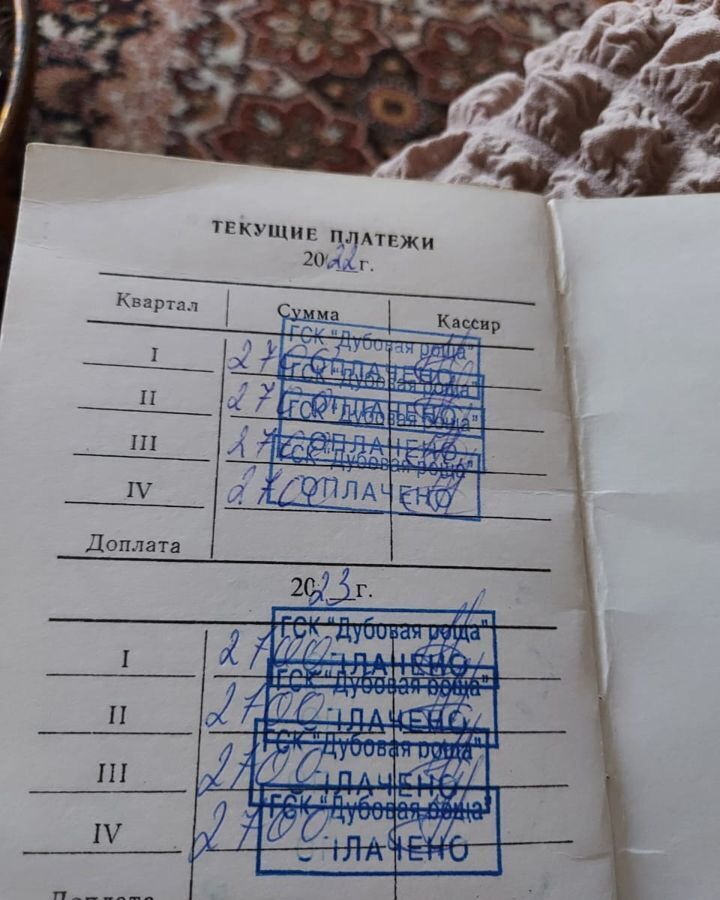 ТЕКУЩИЕ ПЛАТЕЖИ
2022 г.
Квартал Сумма Кассир
ГСК "Дубовая роща"
I 2700 ОПЛАЧЕНО
ГСК "Дубовая роща"
II 2700 ОПЛАЧЕНО
ГСК "Дубовая роща"
III 2700 ОПЛАЧЕНО
ГСК "Дубовая роща"
IV 2700 ОПЛАЧЕНО
Доплата
2023 г.
ГСК "Дубовая роща"
I 2700 ОПЛАЧЕНО
ГСК "Дубовая роща"
II 2700 ОПЛАЧЕНО
ГСК "Дубовая роща"
III 2700 ОПЛАЧЕНО
ГСК "Дубовая роща"
IV 2700 ОПЛАЧЕНО
Доплата